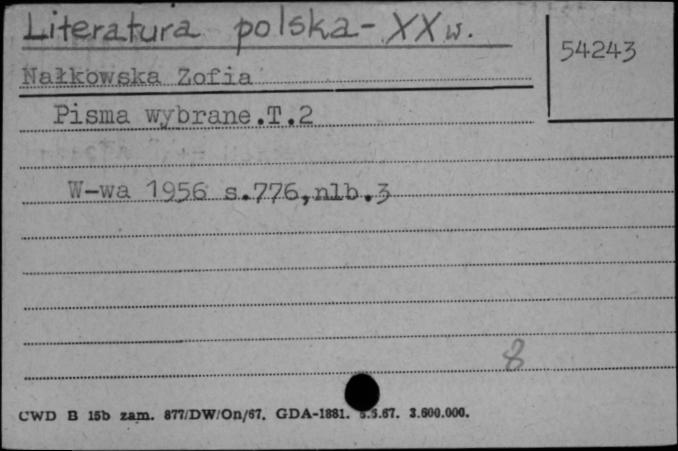 Literatura polska - XX w.
54243
Nałkowska Zofia
Pisma wybrane.T.2
W-wa 1956 s.776,nlb.3
8
CWD B 15b zam. 877/DW/On/67. GDA-1881. 5.67. 3.600.000.